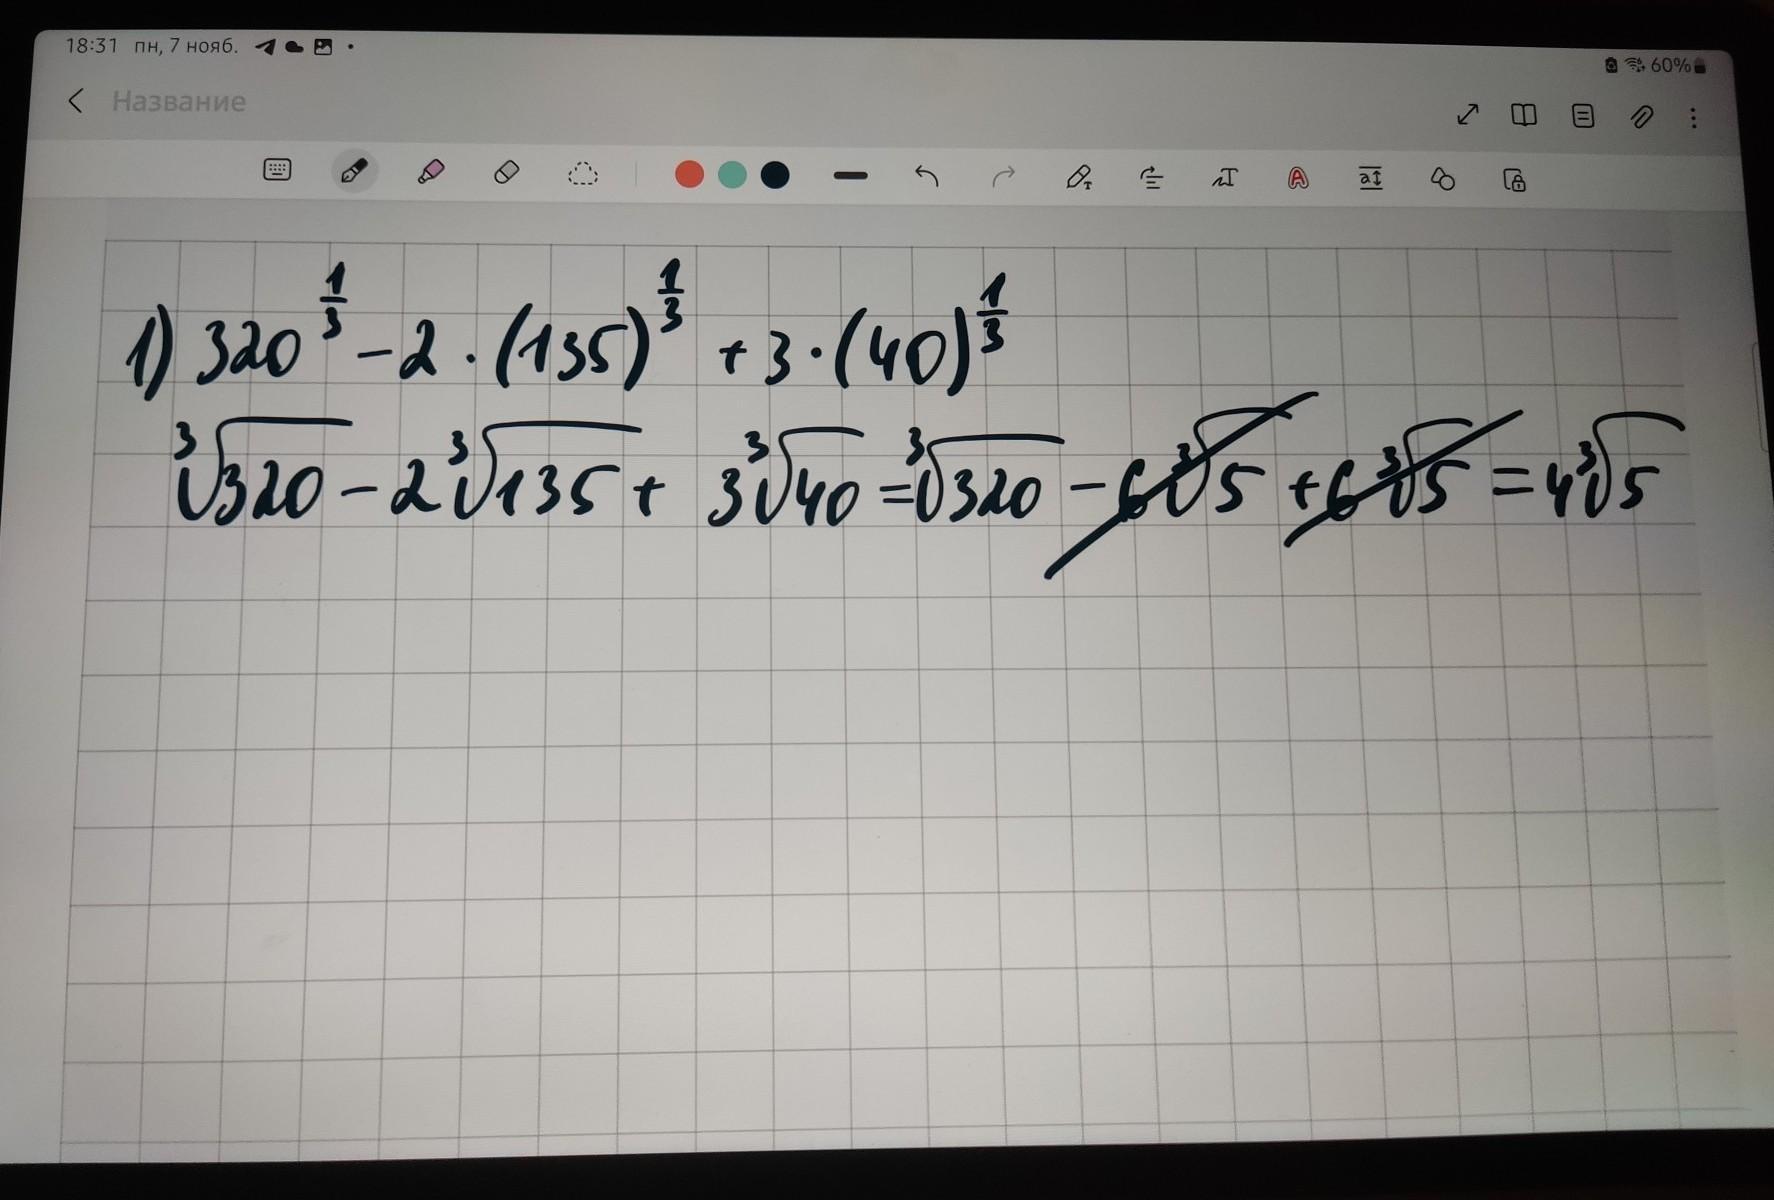 18:31 пн, 7 нояб.
60%
Название
1) 320^{\frac{1}{3}} - 2 \cdot (135)^{\frac{1}{3}} + 3 \cdot (40)^{\frac{1}{3}}
\sqrt[3]{320} - 2\sqrt[3]{135} + 3\sqrt[3]{40} = \sqrt[3]{320} - 6\sqrt[3]{5} + 6\sqrt[3]{5} = 4\sqrt[3]{5}